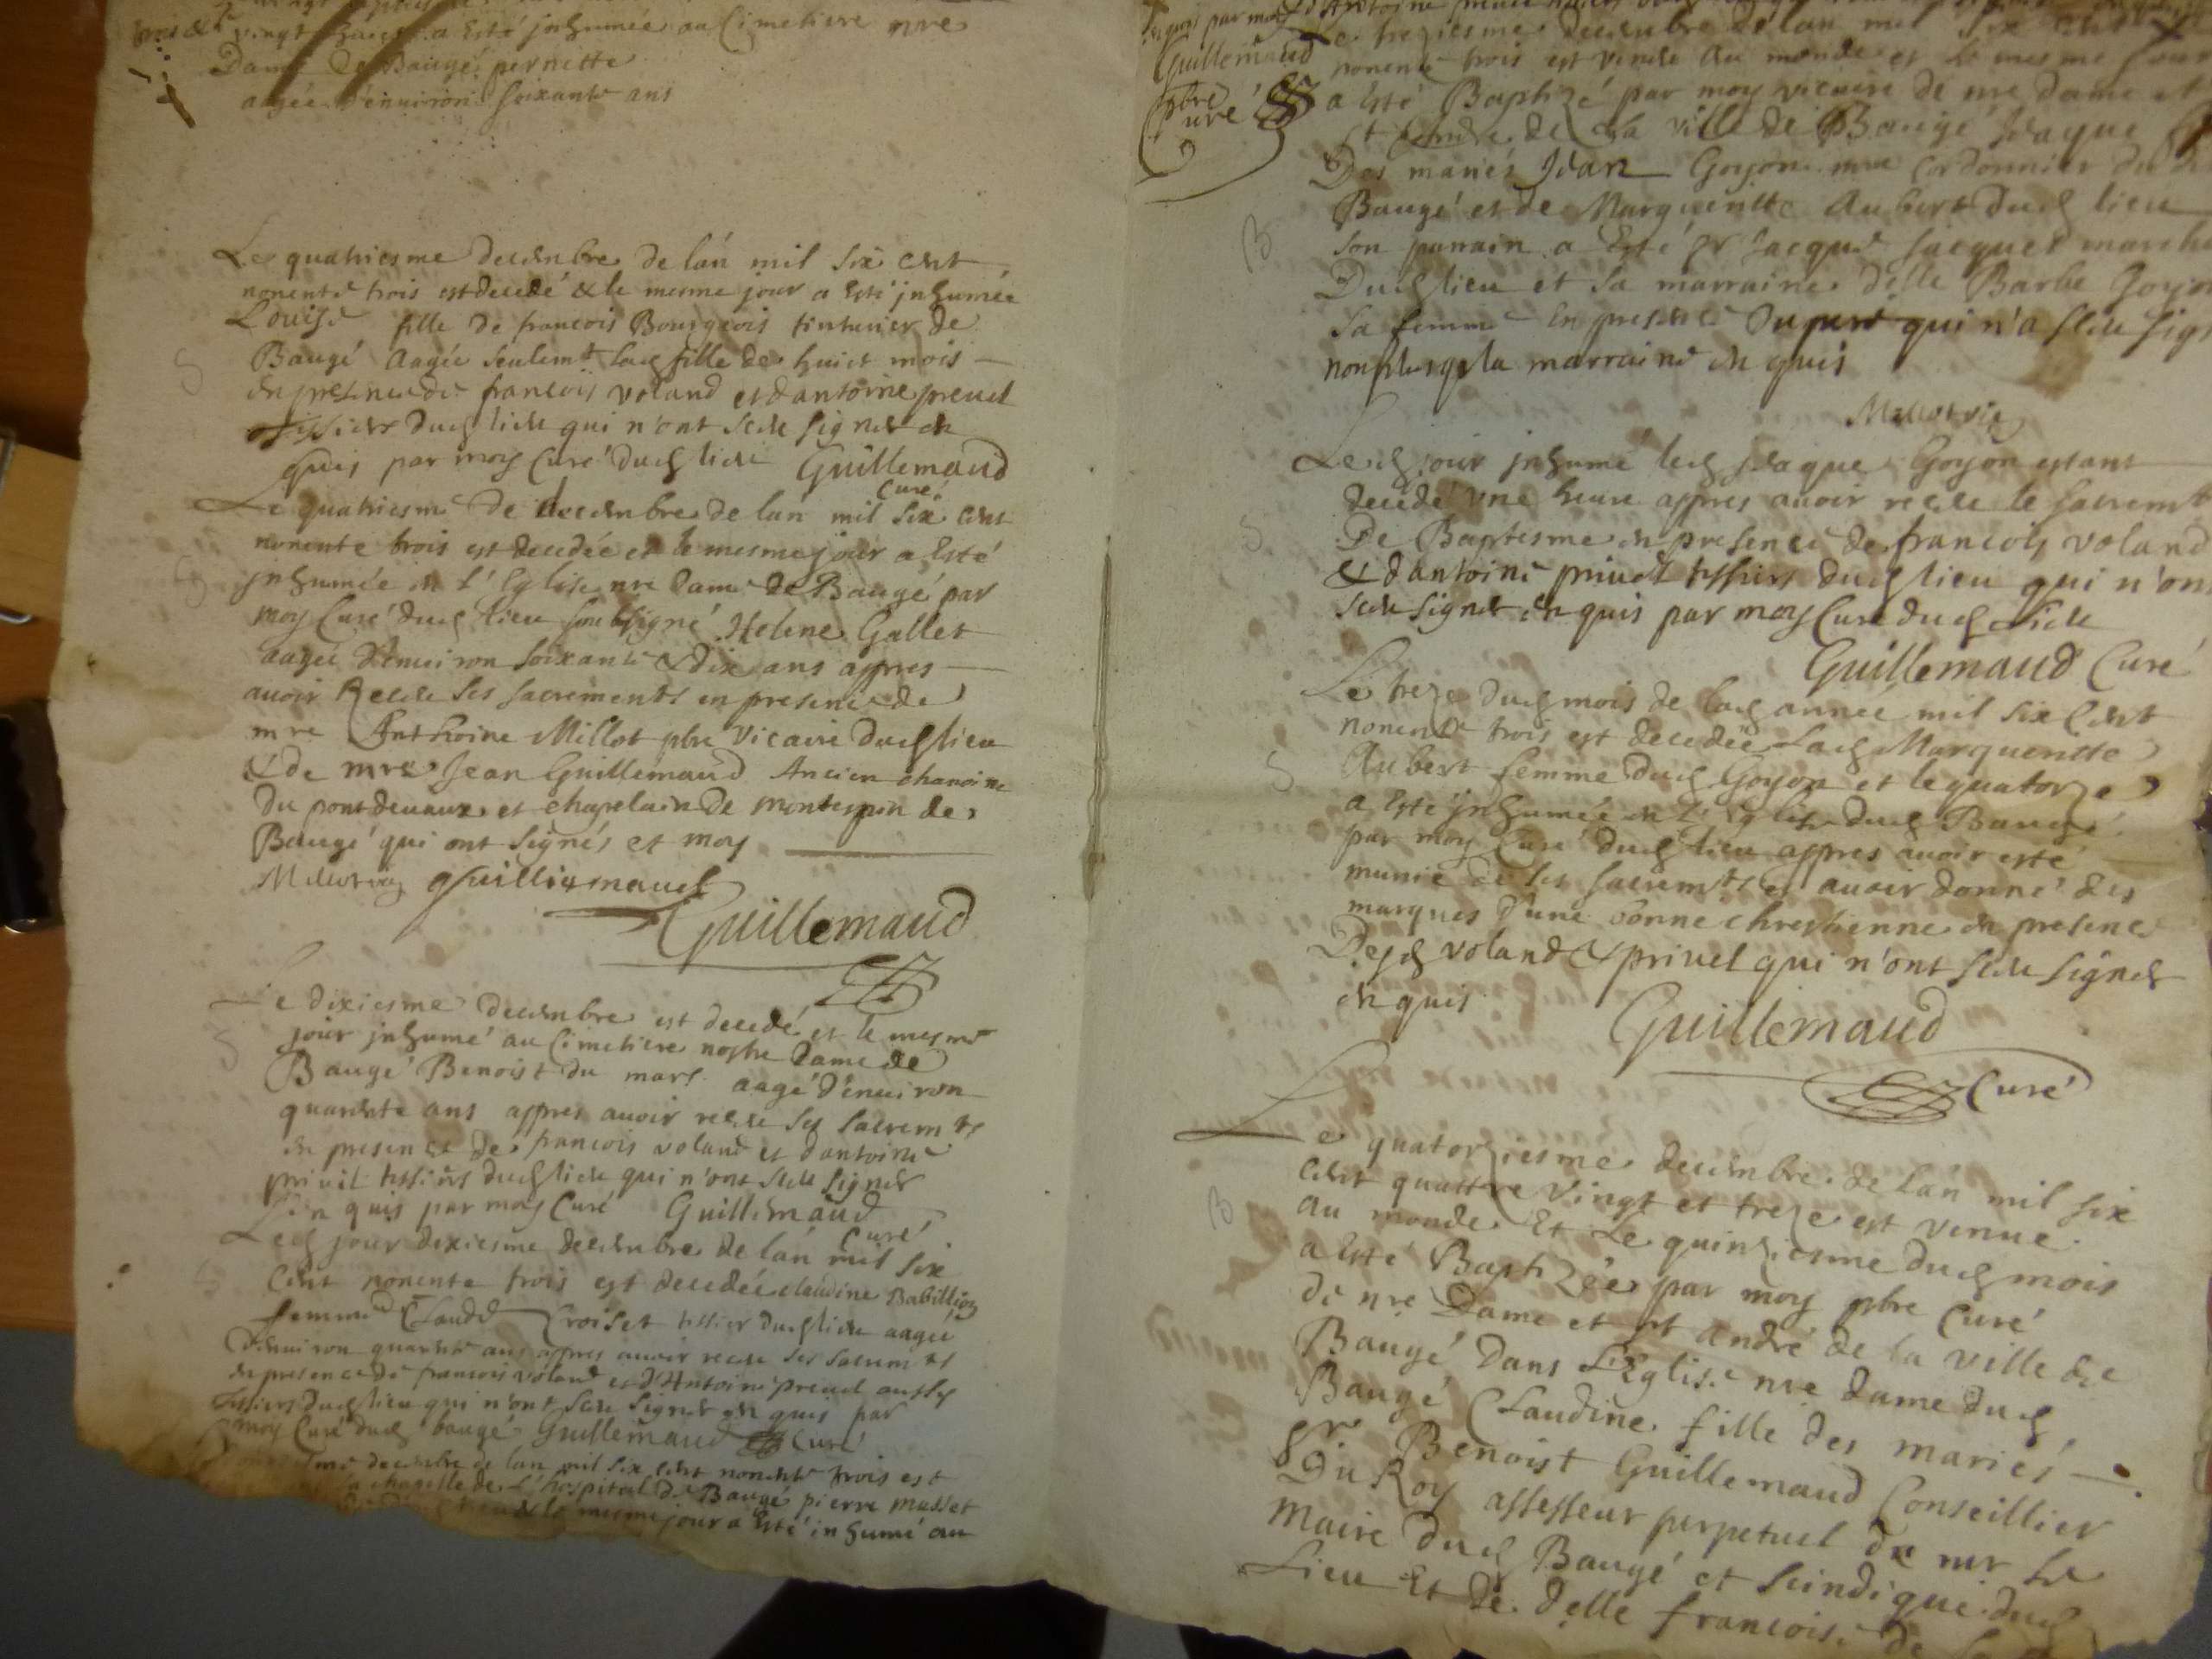 vingt a esté inhumée au Cimetiere nre
Dame de Baugé pernette
aagée d'enuiron soixante ans
Le quatriesme decembre de lan mil six cent
nonente trois est decedé & le mesme jour a esté inhumée
Louise fille de francois Bourgeois tinturier de
Baugé aagée seulemt lad fille de huict mois
en presence de francois voland et dantoine preuel
tissiers dud lieu qui n'ont sceu signer en
quis par moy Curé dud lieu Guillemaud
Curé
Le quatriesme de decembre de lan mil six cent
nonente trois est decedée et le mesme jour a esté
inhumée en l'Eglise nre Dame de Baugé par
moy Curé dud lieu soubsigné Helene Gallet
aagée d'enuiron soixante & dix ans appres
auoir Receu ses sacrements en presence de
mre Anthoine Millot pbre Vicaire dud lieu
& de mre Jean Guillemaud Ancien chanoine
du pontdeuaux et chapelain de montespin de
Baugé qui ont signés et moy
Millot vic guilliemaud
Guillemaud
Le dixiesme decembre est decedé et le mesme
jour inhumé au Cimetiere nostre Dame de
Baugé Benoist du mars aagé d'enuiron
quarente ans appres auoir receu ses sacremts
en presence de francois voland et dantoine
priuil tissiers dud lieu qui n'ont sceu signer
en quis par moy Curé Guillemaud
Curé
Led jour dixiesme decembre de lan mil six
cent nonente trois est decedée claudine Babillion
femme de Claude Croiset tissier dud lieu aagée
d'enuiron quarente ans appres auoir receu ses sacremts
en presence de francois voland et d'Antoine preuel
tissiers dud lieu qui n'ont sceu signer en quis par
moy Curé dud baugé Guillemaud Curé
decembre de lan mil six cent nonente trois est
la chapelle de L'hospital de Baugé pierre musset
& le mesme jour a esté inhumé au
par moy
Guillemaud
pbre
Curé
Le treziesme decembre de lan mil six cent
nonente trois est venu au monde et le mesme jour
a esté Baptizé par moy vicaire de nre dame et
st andré de La ville de Baugé Jsaque
Des mariés Jean Goyon mre Cordonnier dud
Baugé et de Marguerite Aubert dud lieu
son parrain a Esté Jacque Jacquet march
Dud lieu et sa marraine delle Barbe Goyon
sa femme En presence du pere qui n'a sceu sig
non plus q la marraine en quis
Millot vic
Led jour inhumé led Jsaque Goyon estant
decedé une heure appres auoir receu le sacremt
De Baptesme en presence de francois voland
& dantoine priuel tissiers dud lieu qui n'ont
sceu signer en quis par moy Curé dud lieu
Guillemaud Curé
Le treze dud mois de lad année mil six cent
nonente trois est decedée Lad Marguerite
Aubert femme dud Goyon et le quatorze
a esté inhumée en L'Eglise dud Baugé
par moy Curé dud lieu appres auoir esté
munie de ses sacremts et auoir donné des
marques d'une bonne chrestienne en presence
Desd voland & priuel qui n'ont sceu signer
en quis
Guillemaud
Curé
Le quatorziesme decembre de lan mil six
cent quattre vingt et treze est venue
au monde Et Le quinziesme dud mois
a esté Baptizée par moy pbre Curé
de nre Dame et st andré de la ville de
Baugé Dans L'Eglise nre dame dud
Baugé Claudine fille des mariés
Sr Benoist Guillemaud Conseillier
Du Roy assesseur perpetuel de mr le
Maire dud Baugé et scindique dud
Lieu Et de delle francoise de